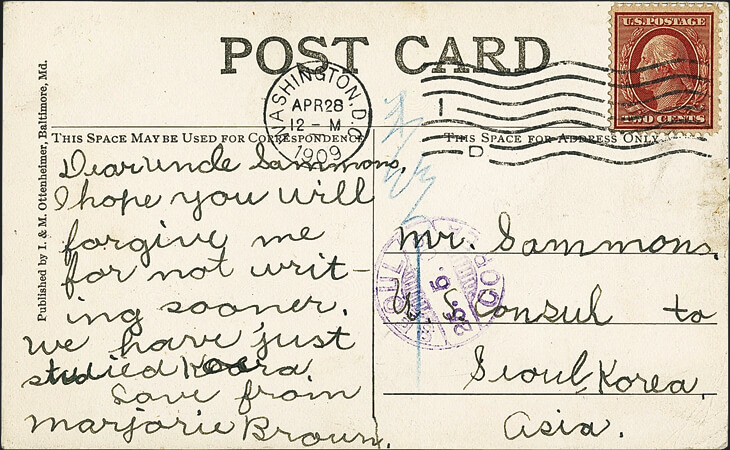 POST CARD
U.S. POSTAGE
TWO CENTS
WASHINGTON, D.C.
APR 28
12 - M
1909
1
D
THIS SPACE MAY BE USED FOR CORRESPONDENCE
THIS SPACE FOR ADDRESS ONLY
Published by I. & M. Ottenheimer, Baltimore, Md.
Dear uncle Sammons,
I hope you will
forgive me
for not writ-
ing sooner.
We have just
studied Koera
Love from
Marjorie Brown.
SEOUL
25. 5.
Mr. Sammons.
U.S Consul to
Seoul, Korea.
Asia.